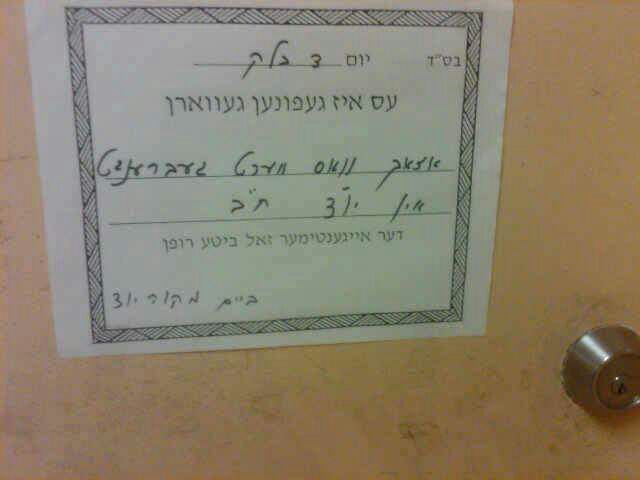 בס"ד יום ד בלק
עס איז געפונען געווארן
וואס ווערט געברענגט
אין יו"ד ח"ב
דער אייגענטימער זאל ביטע רופן
ביים מקור יוצ